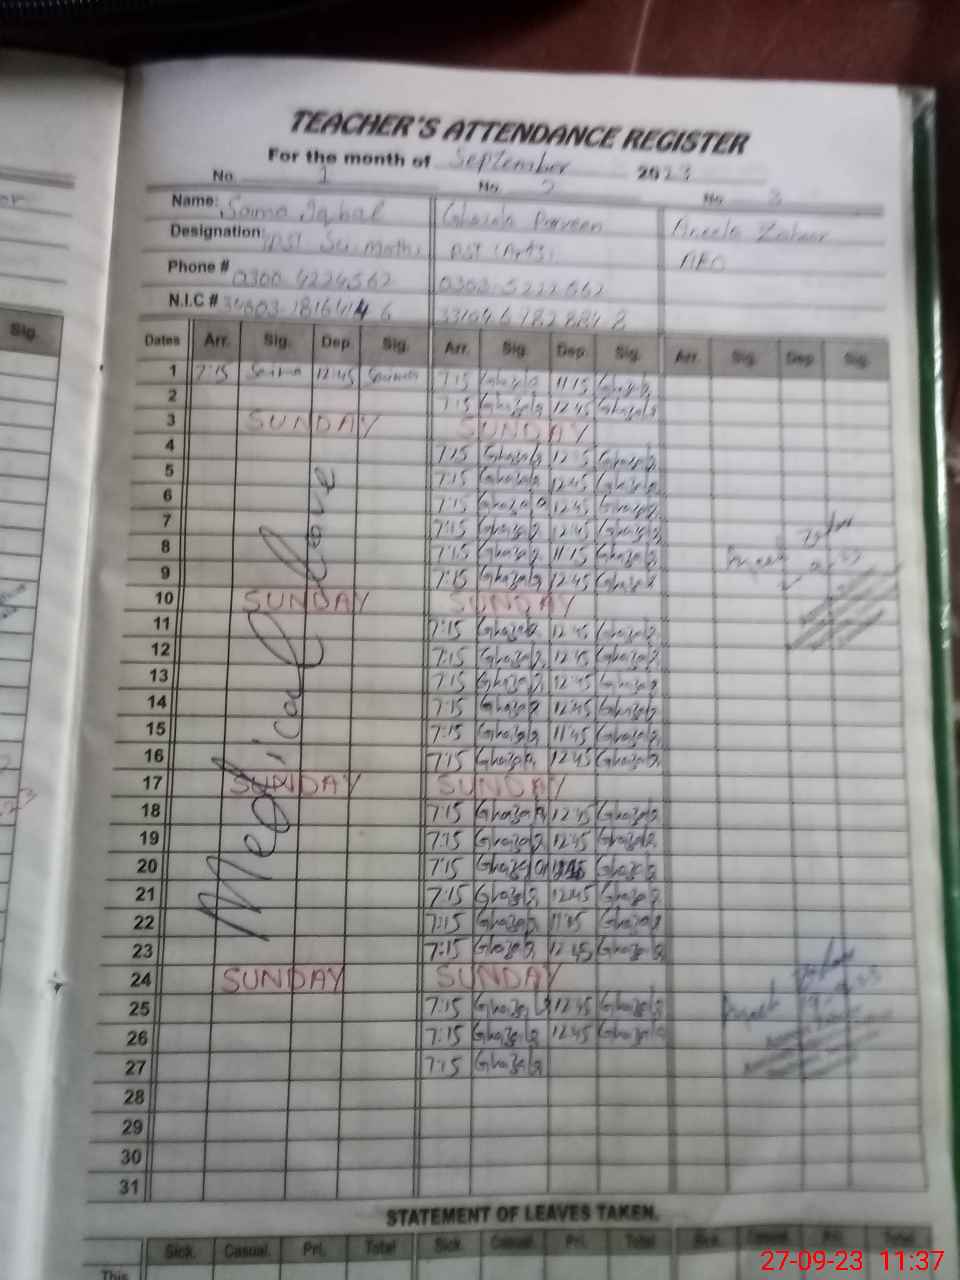 TEACHER'S ATTENDANCE REGISTER
For the month of September 2023
No. 1 No. 2 No. 3
Name: Saima Iqbal Praveen Aneela Zaheer
Designation: PST Sci. Math. PST (Arts) AEO
Phone # 0300 4224562
N.I.C #
Sig.
Dates Arr. Sig. Dep. Sig. Arr. Sig. Dep. Sig. Arr. Sig. Dep. Sig.
1 7:15 Saima 12:45 Saima 7:15 Ghazala 11:15 Ghazala
2 7:15 Ghazala 12:45 Ghazala
3 SUNDAY SUNDAY
4 7:15 Ghazala 12:45 Ghazala
5 7:15 Ghazala 12:45 Ghazala
6 7:15 Ghazala 12:45 Ghazala
7 7:15 Ghazala 12:45 Ghazala
8 7:15 Ghazala 11:15 Ghazala
9 7:15 Ghazala 12:45 Ghazala
10 SUNDAY SUNDAY
11 7:15 Ghazala 12:45 Ghazala
12 7:15 Ghazala 12:45 Ghazala
13 7:15 Ghazala 12:45 Ghazala
14 7:15 Ghazala 12:45 Ghazala
15 7:15 Ghazala 11:45 Ghazala
16 7:15 Ghazala 12:45 Ghazala
17 SUNDAY SUNDAY
18 7:15 Ghazala 12:45 Ghazala
19 7:15 Ghazala 12:45 Ghazala
20 7:15 Ghazala Ghazala
21 7:15 Ghazala 12:45 Ghazala
22 7:15 Ghazala 11:45 Ghazala
23 7:15 Ghazala 12:45 Ghazala
24 SUNDAY SUNDAY
25 7:15 Ghazala 12:45 Ghazala
26 7:15 Ghazala 12:45 Ghazala
27 7:15 Ghazala
28
29
30
31
Medical Leave
STATEMENT OF LEAVES TAKEN.
Sick. Casual. Pri. Total Sick. Casual. Pri. Total Sick. Casual. Pri. Total
This
27-09-23 11:37